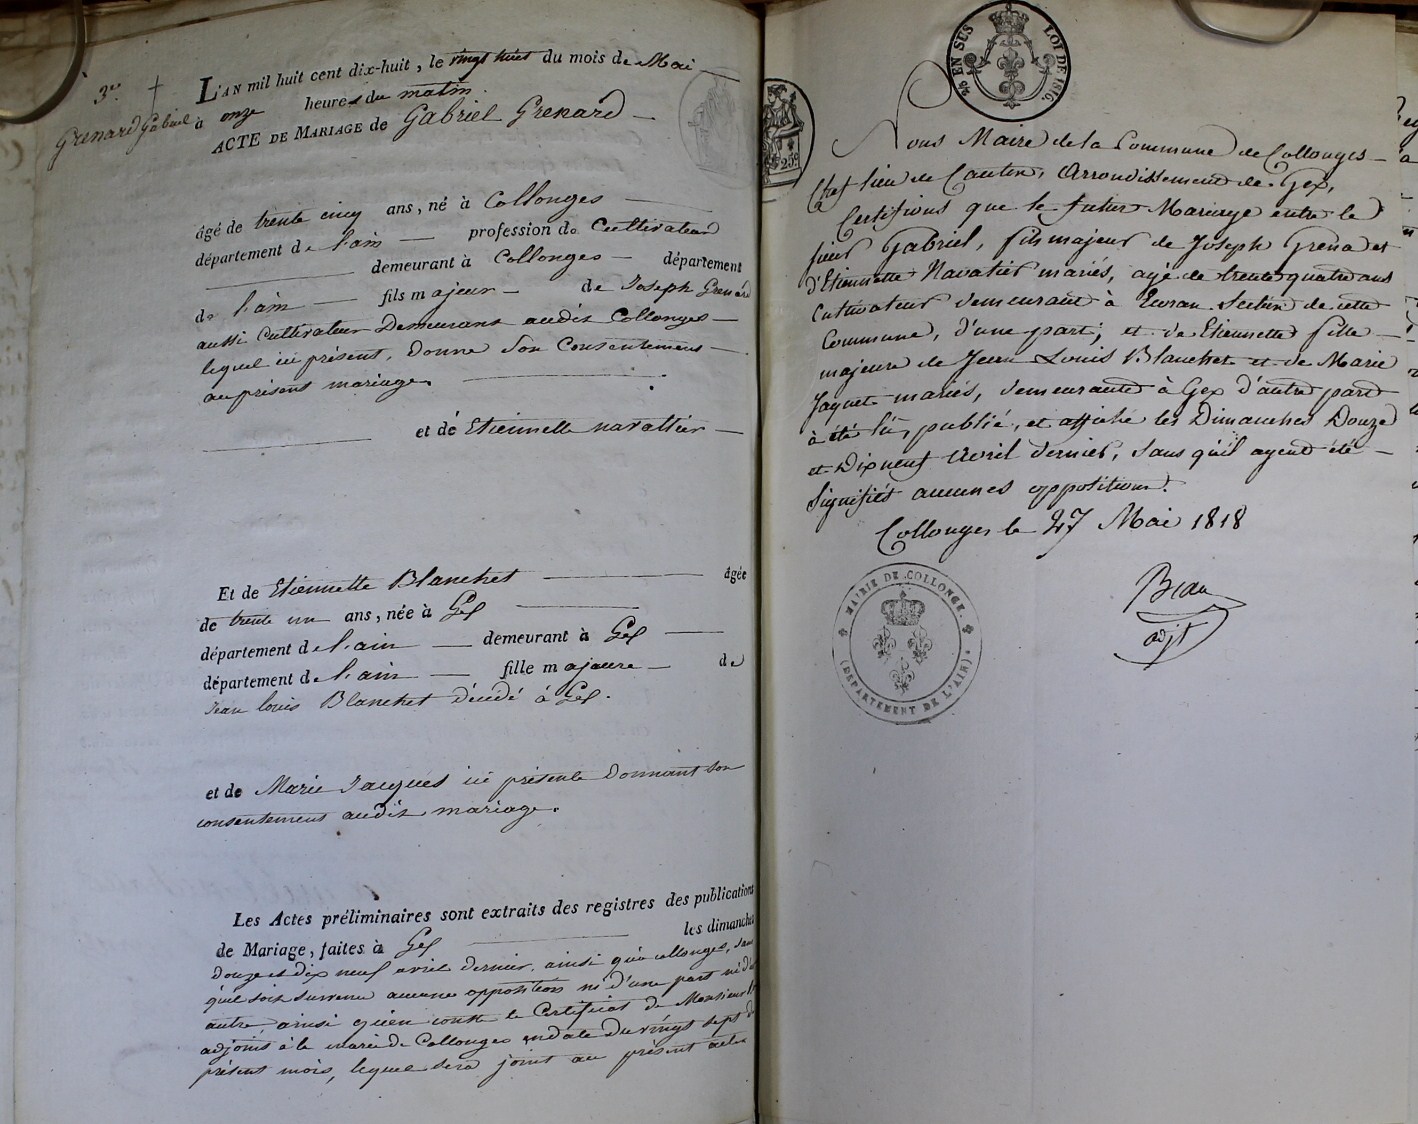 3e.
Grenard Gabriel
L'AN mil huit cent dix-huit, le vingt huit du mois de Mai
à onze heures du matin.
ACTE DE MARIAGE de Gabriel Grenard
âgé de trente cinq ans, né à Collonges
département de l'ain profession de Cultivateur
demeurant à Collonges département
de l'ain fils majeur de Joseph Grenard
aussi Cultivateur Demeurant audit Collonges
lequel ici présent, Donne Son Consentement
au présent mariage.
et de Etiennette navattier
Et de Etiennette Blanchet âgée
de trente un ans, née à Gex
département de l'ain demeurant à Gex
département de l'ain fille majeure de
Jean louis Blanchet décédé à Gex.
et de Marie Jacques ici présente Donnant son
consentement audit mariage.
Les Actes préliminaires sont extraits des registres des publications
de Mariage, faites à Gex les dimanches
Douze et dix neuf avril dernier, ainsi qu'à collonges, sans
qu'il soit survenu aucune opposition ni d'une part ni d'
autre ainsi qu'en conste le Certificat de Monsieur
adjoint à la mairie de Collonges en date du vingt sept du
présent mois, lequel sera joint au présent acte
25c
45 EN SUS
LOI DE 1816.
Nous Maire de la Commune de Collonges
Chef lieu de Canton, Arrondissement de Gex,
Certifions que le futur Mariage entre le
sieur Gabriel, fils majeur de Joseph Grena et
d'Etiennette Navatier mariés, agé de trente quatre ans
Cultivateur demeurant à Ecoran Section de cette
Commune, d'une part; et de Etiennette fille
majeure de Jean Louis Blanchet et de Marie
Jaquet mariés, demeurante à Gex d'autre part
à été lû, publié, et affiché les Dimanches Douze
et Dix neuf Avril dernier, sans qu'il ayent été
Signifiés aucunes oppositions.
Collonges le 27 Mai 1818
MAIRIE DE COLLONGE.
(DEPARTEMENT DE L'AIN)
adjt